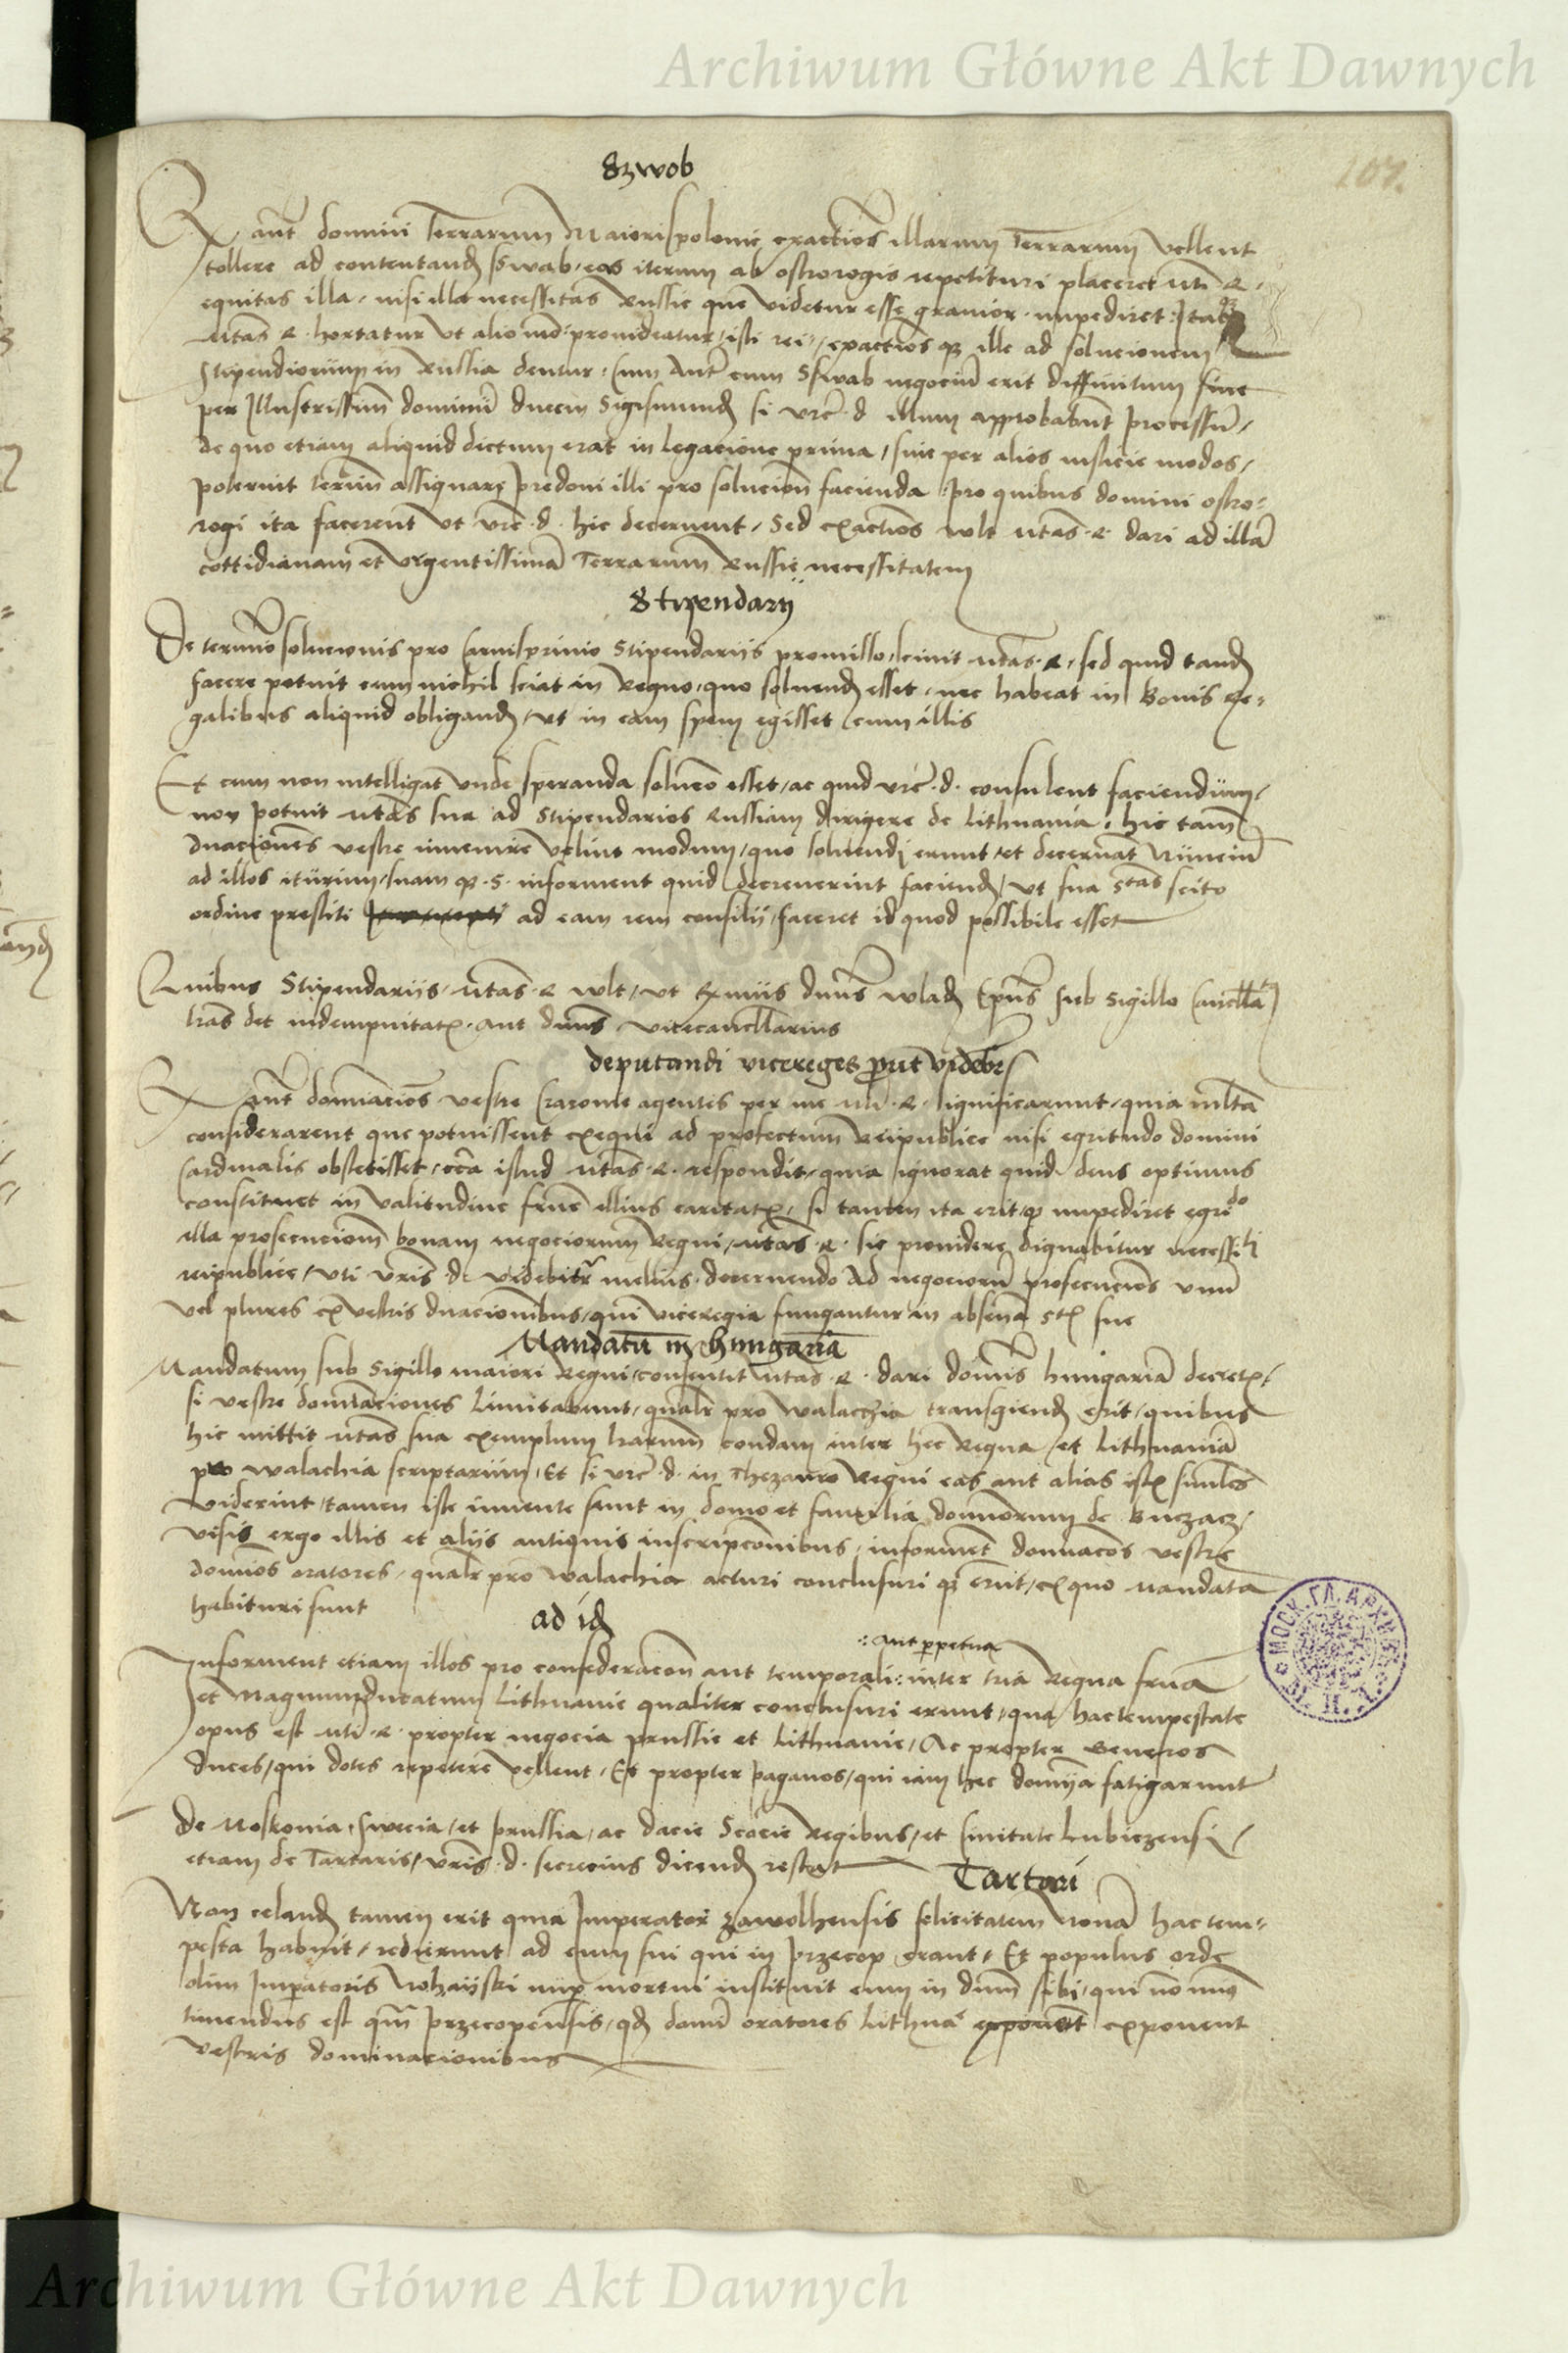 Archiwum Główne Akt Dawnych
107.
Szwob
Q aūt domini Terrarum Maiorispolonie exactiões illarum Terrarum vellent
tollere ad contentand Swab, eas iterum ab ostrorogis repetituri placeret Mti R.
equitas illa, nisi illa necessitas Russie que videtur esse gravior impediret Itaq
Mtas R. hortatur ut alio modo provideatur isti rei, exactiões q ille ad solucionem
stipendiorum in Russia dentur. Cum Aut cum Swab negociū erit diffinitum sive
per Illustrissimū dominū ducem Sigismund si vre d illum approbabūt processū,
de quo etiam aliquid dictum erat in legacione prima, sive per alios iusticie modos,
poterint terminū assignare predoni illi pro solucion facienda pro quibus domini ostro-
rogi ita facerent ut vre d. hic decernent, Sed exactiões wlt Mtas R. dari ad illā
cottidianam et urgentissimā Terrarum Russie necessitatem
Stipendarij
De termino solucionis pro Carnisprivio Stipendariis promisso, scivit Mtas R, sed quid tand
facere potuit cum nichil sciat in Regno, quo solvend esset, nec habeat in Bonis Re-
galibus aliquid obligand, ut in eam spem egisset cum illis
Et cum non intelligat unde speranda soluco esset, ac quid vre d. consulent faciendum,
non potuit Mtas sua ad stipendarios Russiam dirigere de Lithuania, hic tamē
dnaciones vestre invenire velint modum, quo solvendi erunt et decernāt Nunciū
ad illos iturum, suam q S. informent quid decreverint faciend, ut sua Stas scito
ordine prestiti ad eam rem consilii, faceret id quod possibile esset
Quibus Stipendariis, Mtas R wlt, ut Eximiis dnūs wlad Epūs sub sigillo Cancllā
lras det indempnitatꝫ. aut dnūs vicecancllarius
deputandi vicereges prout videbit
Q aūt dominaciões vestre Cracovie agentes per me Mti R. significarunt, quia multa
considerarent que potuissent exequi ad profectum Reipublice nisi egritudo domini
Cardinalis obstetisset, cca istud Mtas R. respondit, quia ignorat quid deus optimus
constituet in valitudine frne illius caritatꝫ, si tamen ita erit, q impediret egrido
illa prosecucionem bonam negociorum Regni, Mtas R. sic providere dignabitur necessiti
reipublice, uti vris d videbitr melius, decernendo Ad negociorū prosecucioēs unū
vel plures ex vestris dnacionibus, qui viceregia fungantur in absēna Stꝫ sue
Mandatū in hungariā
Mandatum sub sigillo maiori Regni, consentit Mtas R. dari dominis hungariā decretꝫ,
si vestre dominaciones limitabunt, qualr pro walachia transigiend erit, quibus
hic mittit Mtas sua exemplum lrarum condam inter hec Regna et Lithuaniā
pro walachia scriptarum, Et si vre d. in Thezauro Regni eas aut alias istꝫ similes
viderint, tamen iste invente sunt in domo et familia dominorum de Buczacz,
visis ergo illis et aliis antiquis inscripcionibus, informēt dominacōs vestre
dominos oratores, qualr pro walachia acturi conclusuri q erūt, ex quo Mandata
habituri sunt
ad id
:aut perpetua
Informent etiam illos pro confederacōn aut temporali: inter tria Regna frnā
et Magnum ducatum Lithuanie qualiter conclusuri erunt, que hac tempestate
opus est Mti R. propter negocia prussie et Lithuanie, Ac propter Generos
duces, qui dotes repetere vellent, Et propter paganos, qui iam hec dominia fatigarunt
De Moskovia, Swecia, et prussia, ac dacie Scocie Regibus, et Civitate Lubiczensi,
etiam de Tartaris, vris d. secrecius dicend restat
Tartari
Non celand tamen erit quia Imperator zawolhensis felicitatem novā hac tem-
pesta habuit, redierunt ad eum sui qui in przecop erant, Et populus orde
olim Imperatoris Nohayski nup mortui instituit eum in dnm sibi, qui nō minus
timendus est qm przecopensis, qd domi oratores Lithuā exponent
vestris dominacionibus
Archiwum Główne Akt Dawnych